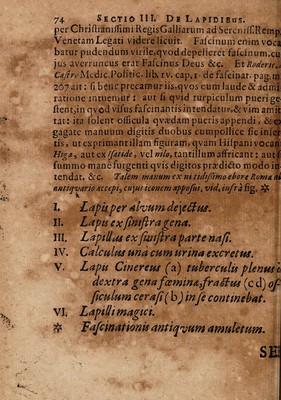 74 SECTIO III. DE LAPIDIBUS.
per Christianissimi Regis Galliarum ad Sereniss. Remp.
Venetam Legati videre licuit. Fascinum enim voca
batur pudendum virile, quod depelleret fascinum, cu
jus averruncus erat Fascinus Deus &c. Et Roderic.
Castr. Medic. Politic. lib. rv. cap. 1. de fascinat. pag. m
207 ait: si benè precamur iis, quos cum laude & admi
ratione intuemur: aut si quid turpiculum pueri ge
stent, in quod visus fascinantis intendatur, & vim amit
tat: ita solent officula quædam pueris appendi, & ex
gagate manuum digitis duobus cumpollice sic inser
tis, ut exprimant illam figuram, quam Hispani vocant
Higa, aut ex isatide, vel nilo, tantillum afficant; aut
summo mane surgenti quis digitis prædicto modo in
tendat, &c. Talem manum ex nitidissimo ebore Romæ ab
antiquario accepi, cujus iconem apposui, vid, infrà fig. *
I. Lapis per alvum dejectus.
II. Lapis ex sinistra gena.
III. Lapillus ex sinistra parte nasi.
IV. Calculus una cum urina excretus.
V. Lapis Cinereus (a) tuberculis plenus è
dextra gena fœminæ, fractus (cd) os-
siculum cerasi (b) in se continebat.
VI. Lapilli magici.
* Fascinationis antiqvum amuletum.